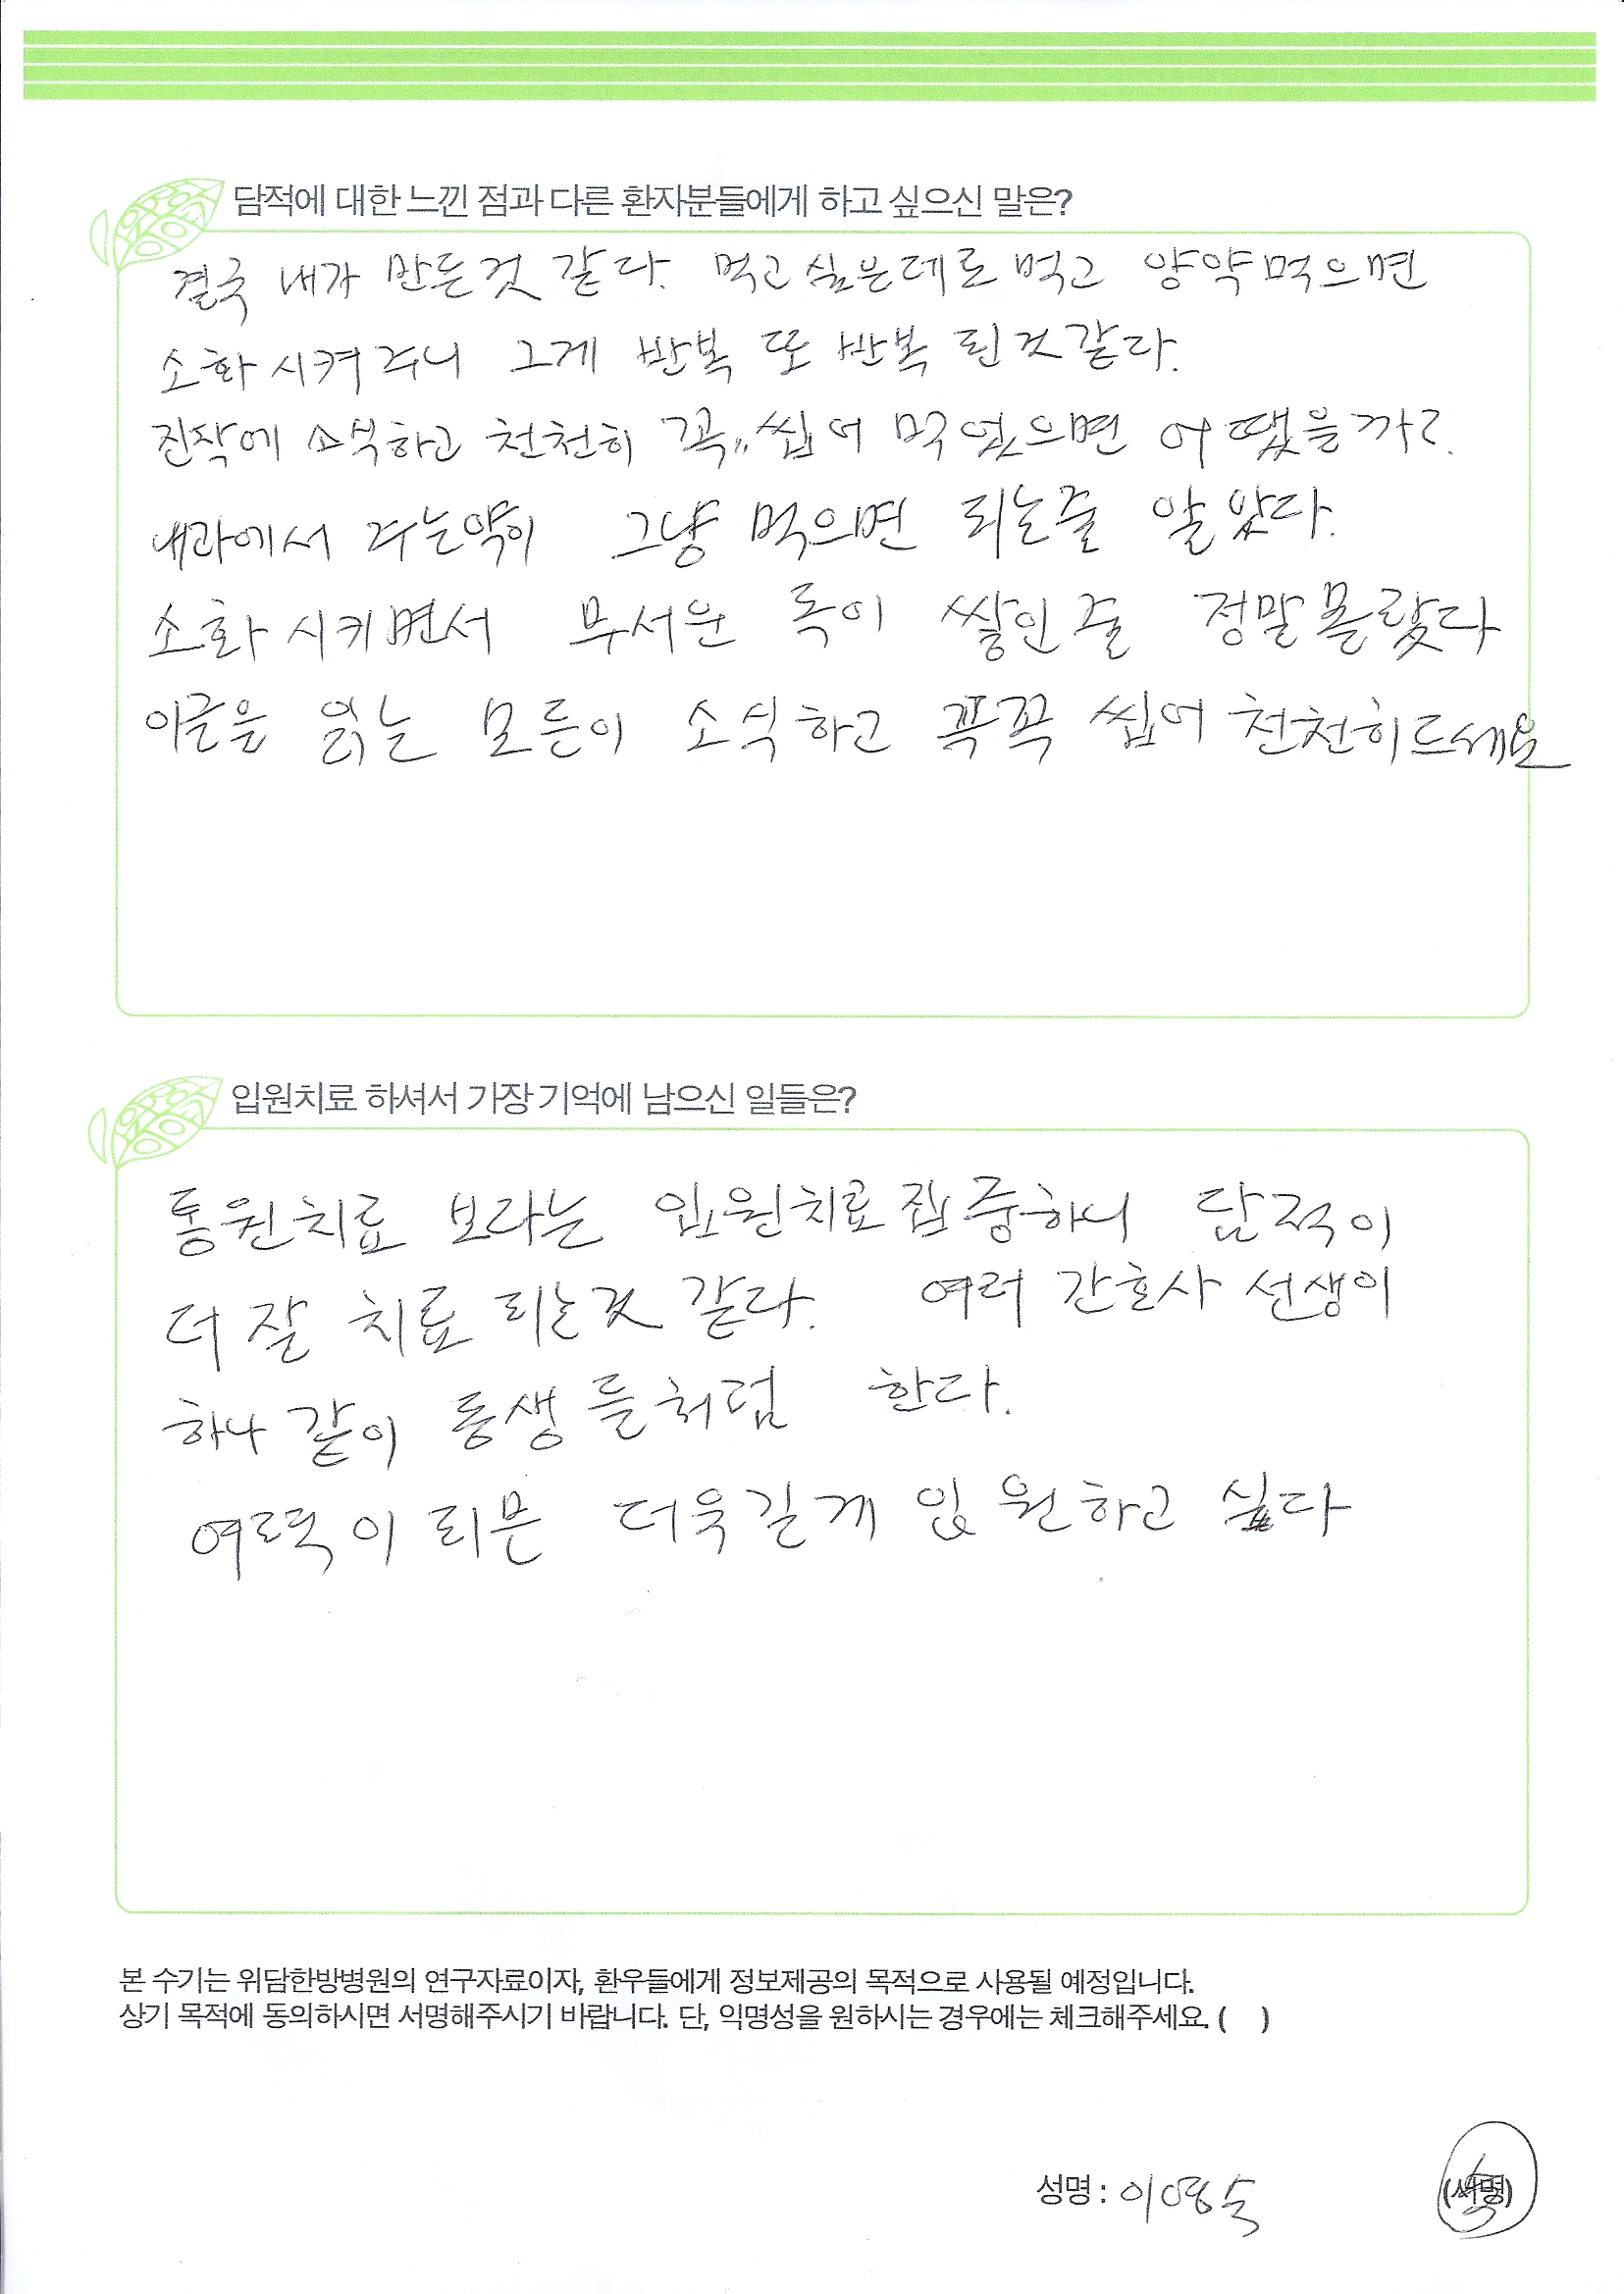 담적에 대한 느낀 점과 다른 환자분들에게 하고 싶으신 말은?
결국 내가 만든것 같다. 먹고 싶은데로 먹고 양약먹으면
소화시켜주니 그게 반복 또 반복 된것같다.
진작에 소식하고 천천히 꼭〃씹어 먹었으면 어땠을까?
내과에서 주는약이 그냥 먹으면 되는줄 알았다.
소화시키면서 무서운 독이 쌓인줄 정말몰랐다
이글을 읽는 모든이 소식하고 꼭꼭 씹어 천천히드세요
입원치료 하셔서 가장 기억에 남으신 일들은?
통원치료 보라는 입원치료집중하니 담적이
더 잘 치료 되는것 같다. 여러 간호사 선생이
하나 같이 동생들처럼 한다.
여력이 되믄 더욱길게 입원하고 싶다
본 수기는 위담한방병원의 연구자료이자, 환우들에게 정보제공의 목적으로 사용될 예정입니다.
상기 목적에 동의하시면 서명해주시기 바랍니다. 단, 익명성을 원하시는 경우에는 체크해주세요. (   )
성명 : 이영숙 (서명)